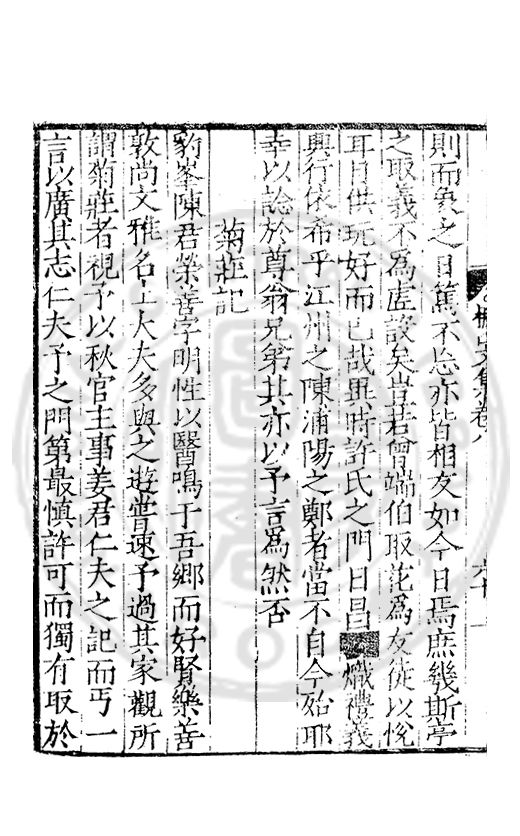 則而象之日篤不忘亦皆相友如今日焉庶幾斯亭
之取義不為虛設矣豈若曾端伯取花為友徒以悅
耳目供玩好而已哉異時許氏之門日昌熾禮義
興行依希乎江州之陳浦陽之鄭者當不自今始耶
幸以諗於尊翁兄弟其亦以予言為然否
菊莊記
豹峯陳君榮善字明性以醫鳴于吾鄉而好賢樂善
敦尚文雅名士大夫多與之遊嘗速予過其家觀所
謂菊莊者視予以秋官主事姜君仁夫之記而丐一
言以廣其志仁夫予之門第最慎許可而獨有取於
文集卷八